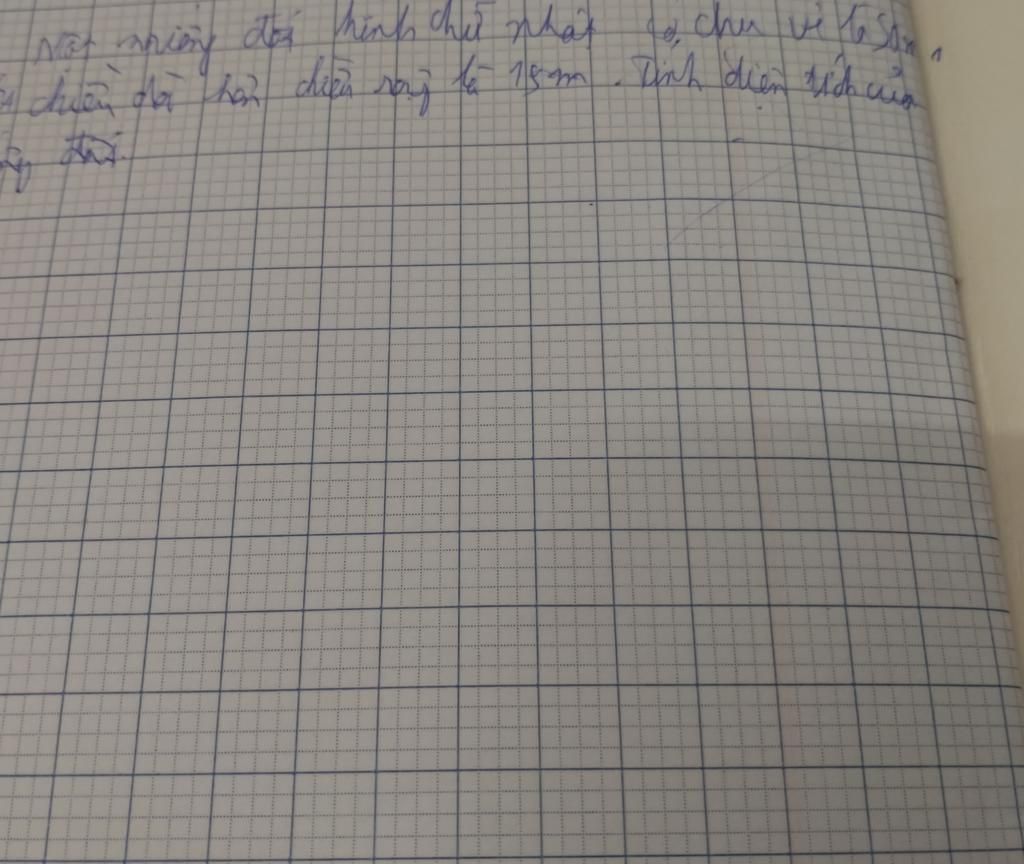 Một miếng đất hình chữ nhật có chu vi là
chiều dài hơn chiều rộng là 15m. Tính diện tích của
đất.